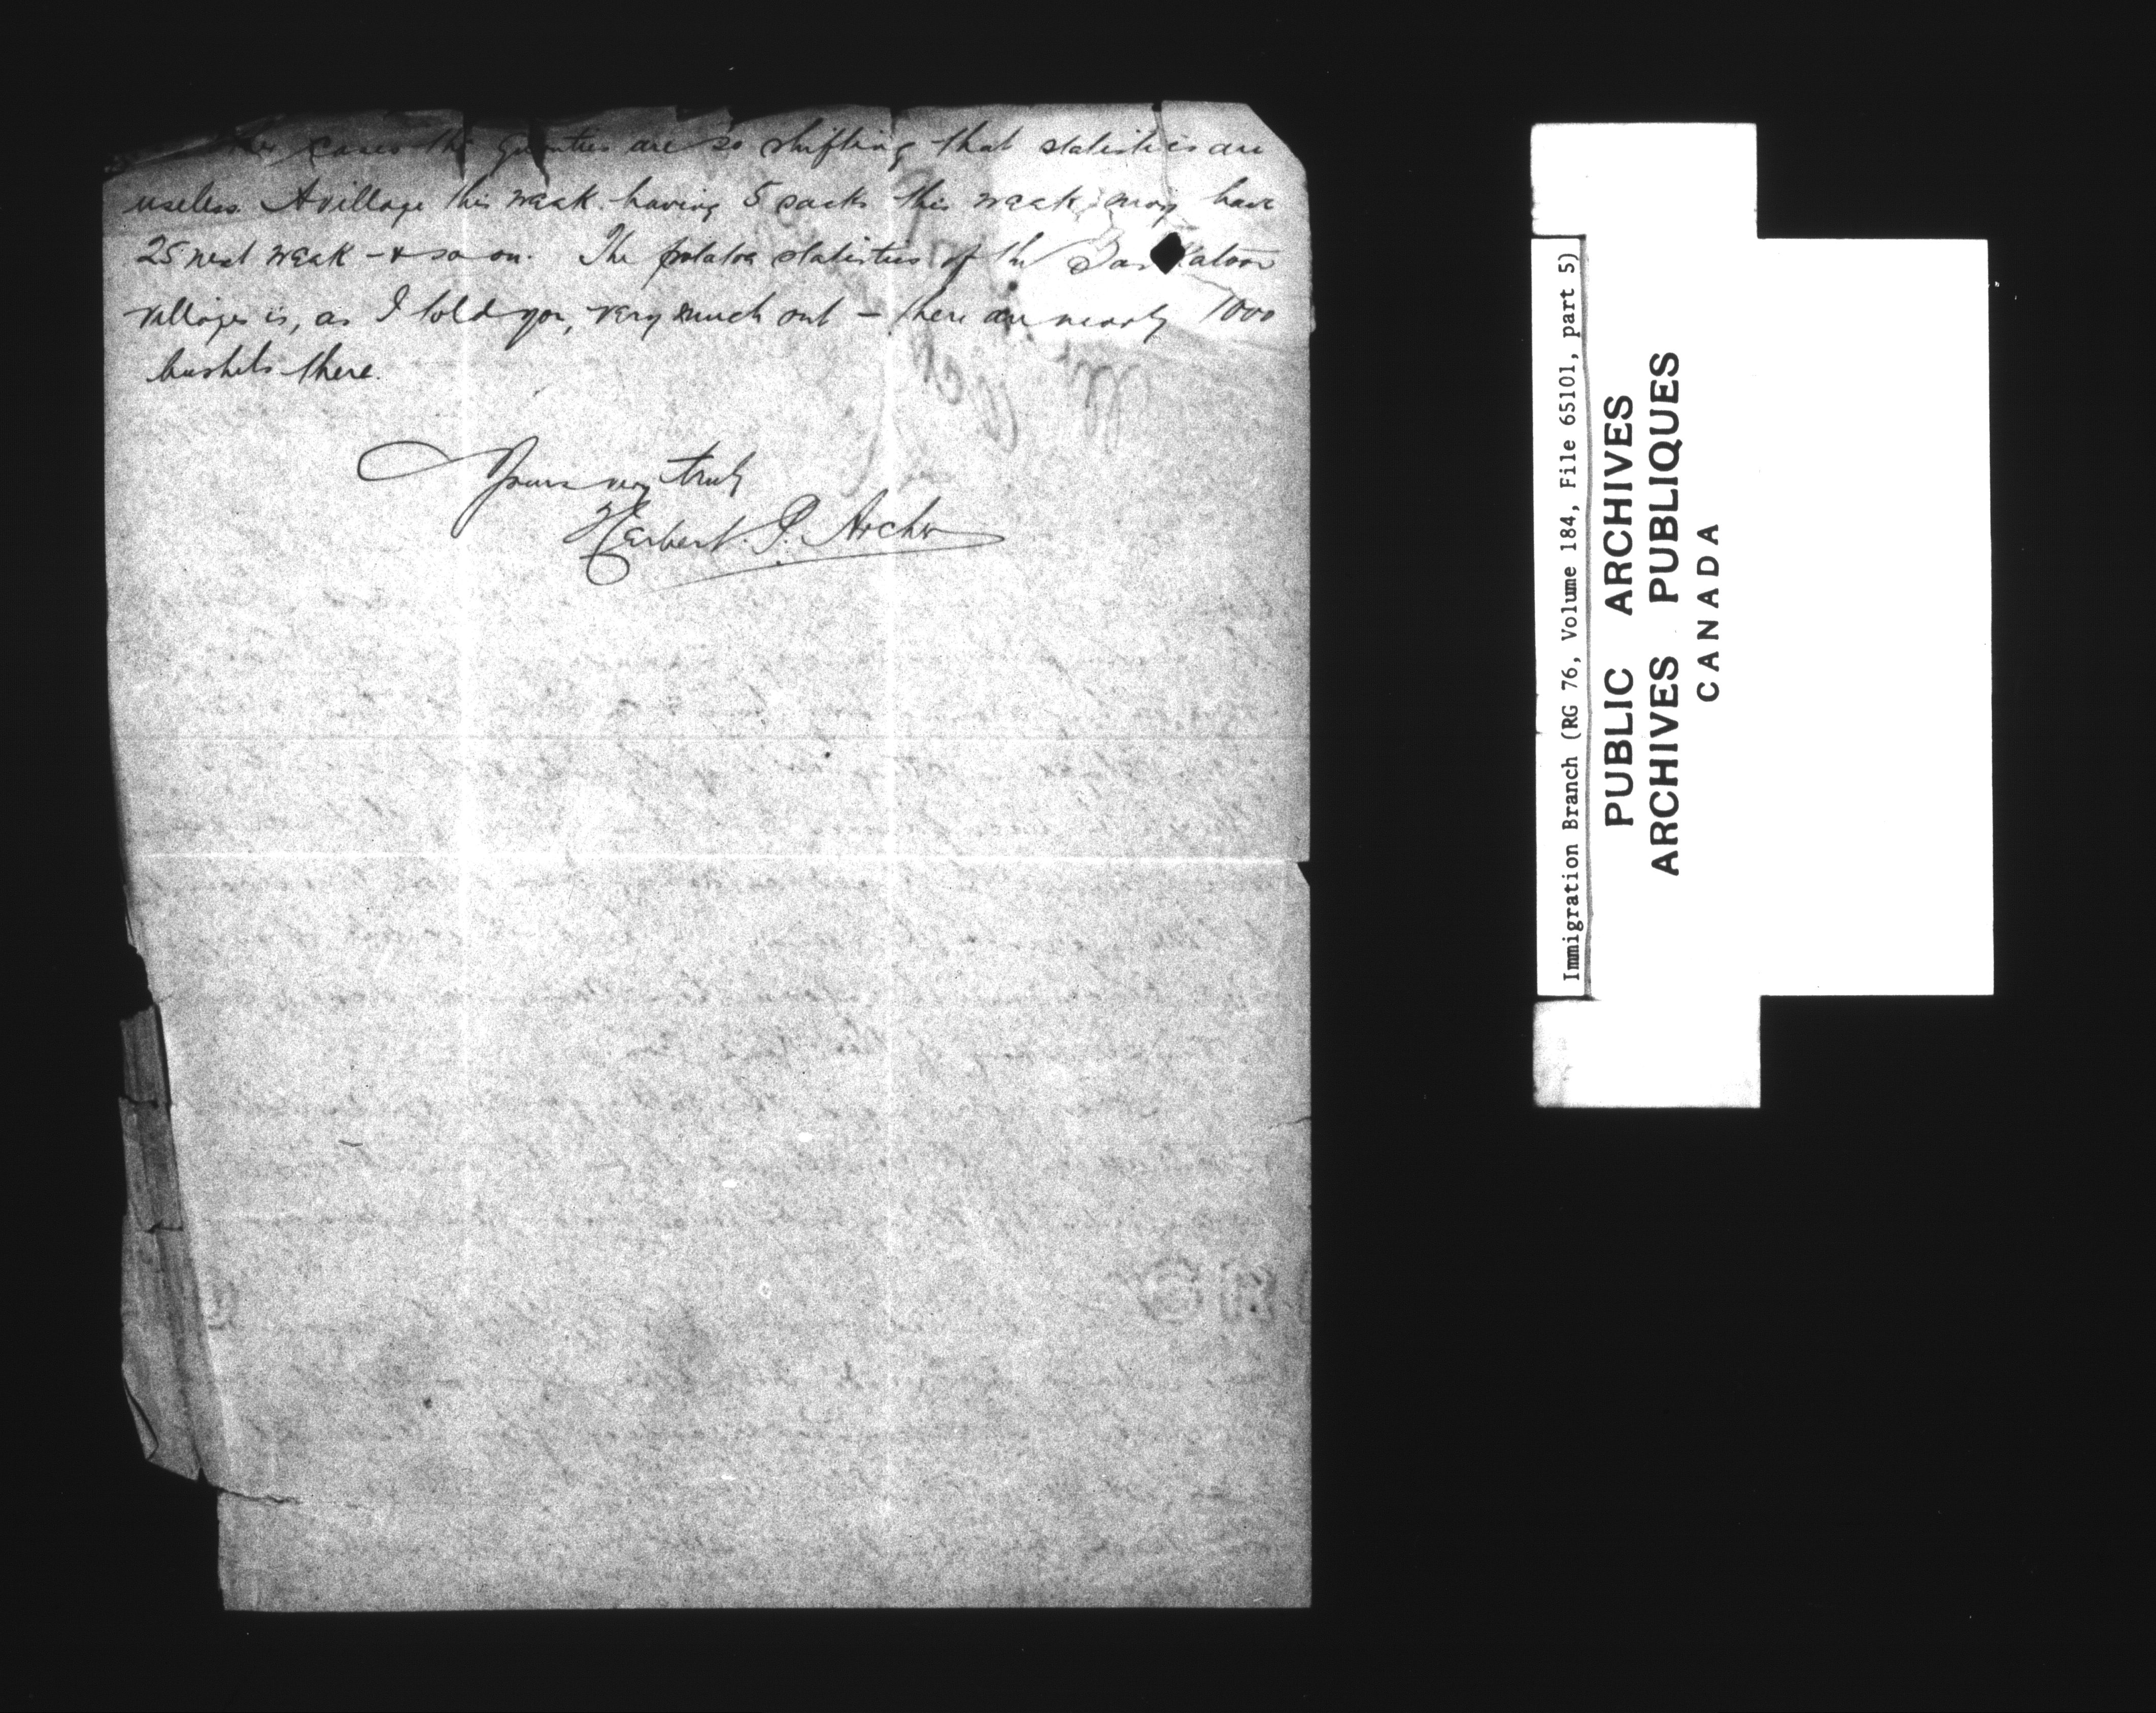 cases the quantities are so shifting that statistics are
useless. A village this week having 5 sacks this week may have
25 next week - & so on. The potatoe statistics of the Saskatoon
villages is, as I told you, very much out - there are nearly 1000
bushels there.
Yours very truly
Herbert P. Archer
Immigration Branch (RG 76, Volume 184, File 65101, part 5)
PUBLIC ARCHIVES
ARCHIVES PUBLIQUES
CANADA